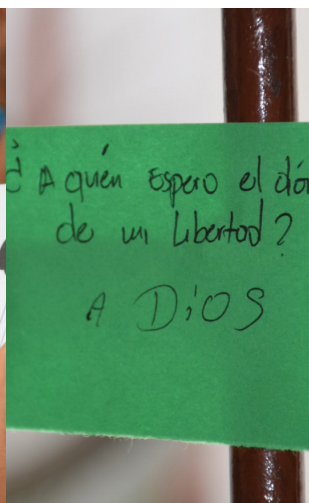 ¿A quién espero el día
de mi libertad?
A DIOS